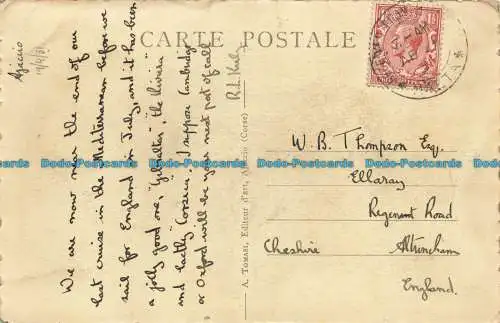 CARTE POSTALE
Ajaccio
We are now near the end of our
last cruise in the Mediterranean before we
sail for England in July, and it has been
a jolly good one, "Gibraltar" "the Riviera"
and lastly "Corsica". I suppose Cambridge
or Oxford will be your next port of call
A. TOMASI, Editeur d'art, (Corse)
W. B. Thompson Esq.
Ellaray
Regent Road
Cheshire Altrincham
England.
Dodo-Postcards Dodo-Postcards Dodo-Postcards Dodo-Postcards